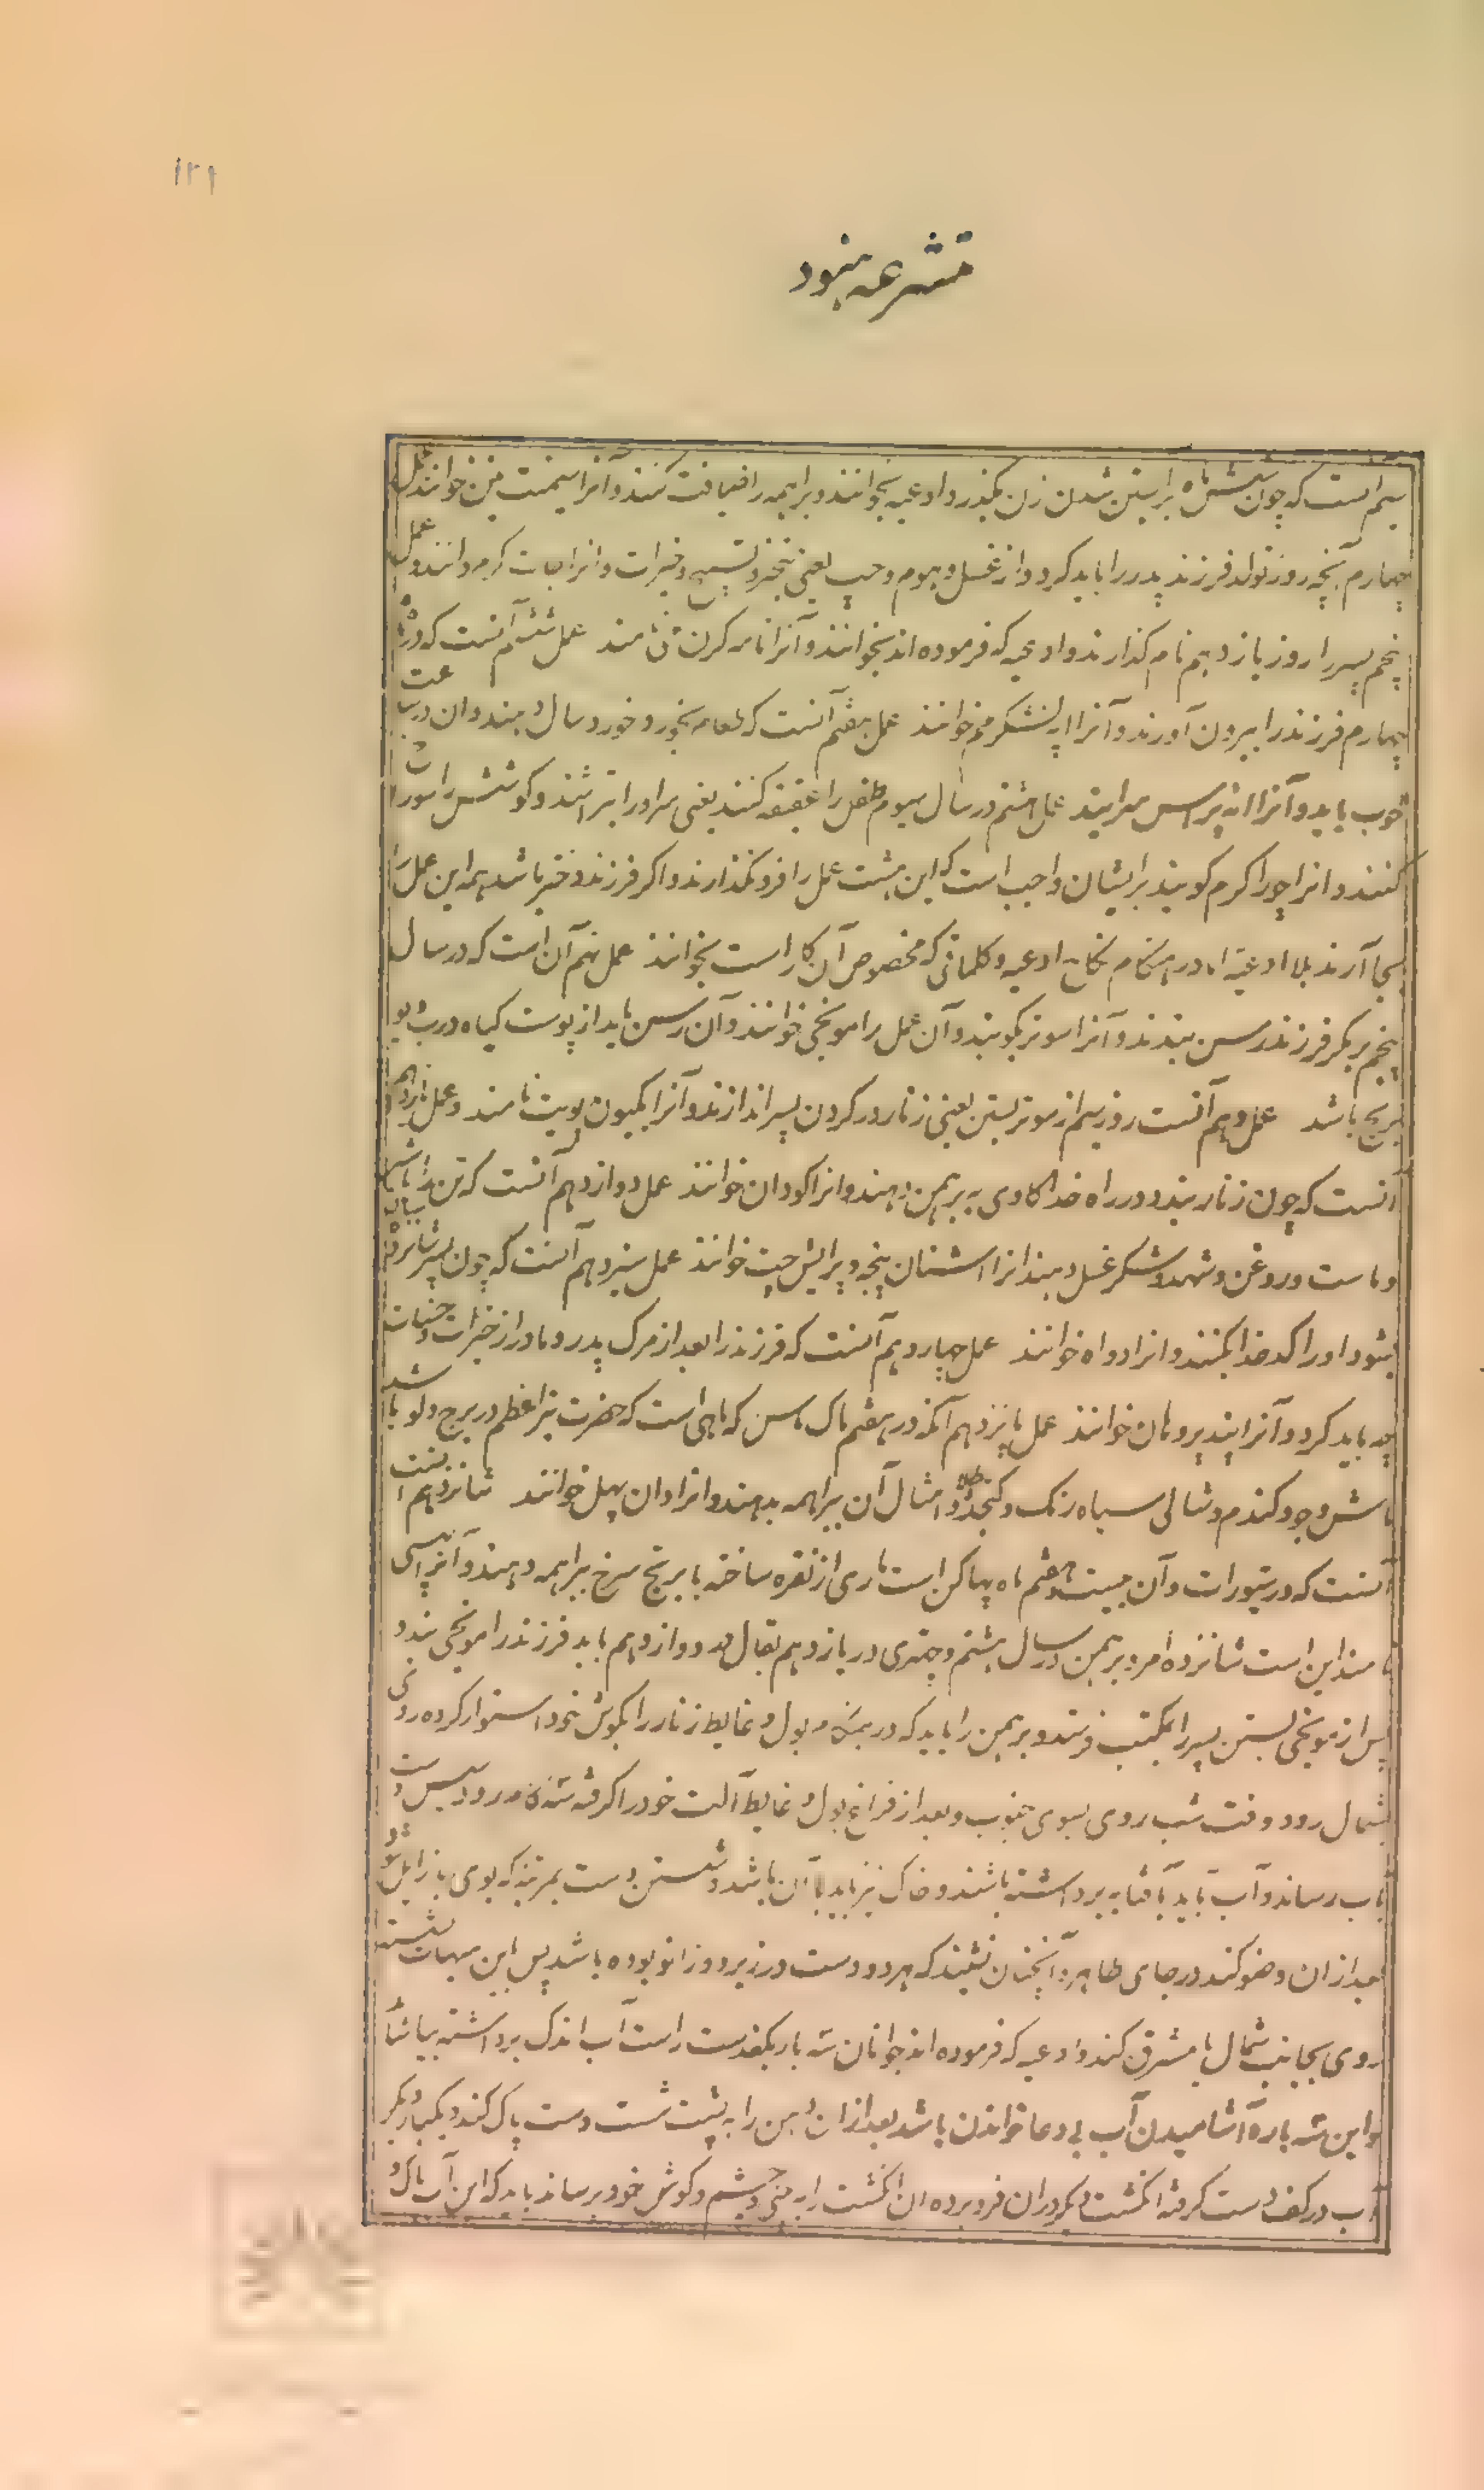 ۱۲۹
متشرعه هنود
سیم است که چون شش ماه بر آبستن شدن زن بگذرد ادعیه بخوانند و براهمه را ضیافت کنند و آنرا سیمنت نین خوانند عمل
چهارم آنچه روز تولد فرزند پدر را باید کرد و از غسل و هوم و جپ یعنی بخور و تسبیح و خیرات و آنرا جات کرم دانند و عمل
پنجم پسر را روز یازدهم نام گذارند و ادعیه که فرموده اند بخوانند و آنرا نام کرن نامند عمل ششم آنست که در ماه
چهارم فرزند را بیرون آورند و آنرا خوانند عمل هفتم آنست که طعام بخورد خورد سال دهند و آن در ساعت
خوب باید و آنرا سرایند عمل هشتم در سال سیوم طفل را عقیقه کنند یعنی سر او را بتراشند و گوشش را سوراخ
کنند و انرا چورا کرم گویند بر ایشان واجب است که این هشت عمل را فرو نگذارند و اگر فرزند دختر باشد همه این عمل را
بجا آرند بلا ادعیه اما در هنگام نکاح ادعیه و کلماتی که مخصوص آن کار است بخوانند عمل نهم آن است که در سال
پنجم بر کمر فرزند رسن بندند و آنرا مونز گویند و آن عمل را مونجی خوانند و آن رسن باید از پوست گیاه درب و بو
باشد عمل دهم آنست روز سیم از مونز بستن یعنی زنار در گردن پسر اندازند و آنرا یکیون پویت نامند و عمل یازدهم
آنست که چون زنار بندد در راه خدا گاوی به برهمن دهند و انرا گودان خوانند عمل دوازدهم آنست که تن
و ماست و روغن و شهد و شکر غسل دهند انرا اشنان پنجه و پرایش چت خوانند عمل سیزدهم آنست که چون پسر شانزده
بشود او را کدخدا کنند و انرا دواه خوانند عمل چهاردهم آنست که فرزند را بعد از مرگ پدر و مادر از خیرات و حسنات
چه باید کرد و آنرا خوانند عمل پانزدهم آنکه در هفتم ماک ماس که ماهی است که حضرت نیر اعظم در برج دلو باشد
ماش و جو و گندم و شالی سیاه رنگ و کنجد و طلا و امثال آن ببراهمه بدهند و انرا دان پهل خوانند شانزدهم
آنست که در شیورات و آن بیست و هفتم ماه پهاگن است ماری از نقره ساخته با برنج سرخ ببراهمه دهند و آنرا
نامند این است شانزده امر و برهمن در سال هشتم و چتری در یازدهم بقال در دوازدهم باید فرزند را مونجی بندد
پس از مونجی بستن پسر را بمکتب فرستد و برهمن را باید که در هنگام بول و غایط زنار را بگوش خود استوار کرده روی
شمال رود و وقت شب روی بسوی جنوب و بعد از فراغ بول و غایط آلت خود را گرفته سه قدم رود پس دست
باب رساند و آب باید بآفتابه برداشته باشند و خاک نیز باید با آن باشد و شستن دست بمرتبه که بوی بد زایل شود
بعد از آن وضو کند در جای طاهر و آنچنان نشیند که هر دو دست در زیر دو زانو بوده باشد پس باین هیات نشسته
روی بجانب شمال یا مشرق کند و ادعیه که فرموده اند خوانان سه بار بکف دست راست آب اندک برداشته بیاشامد
و این سه باره آشامیدن آب بی دعا خواندن باشد بعد از آن دهن را به پشت شست دست پاک کند و یکبار دیگر
آب در کف دست گرفته انگشت دیگر در آن فرو برده آن انگشت را به بینی و چشم و گوش خود برساند باید که این آب پاک و